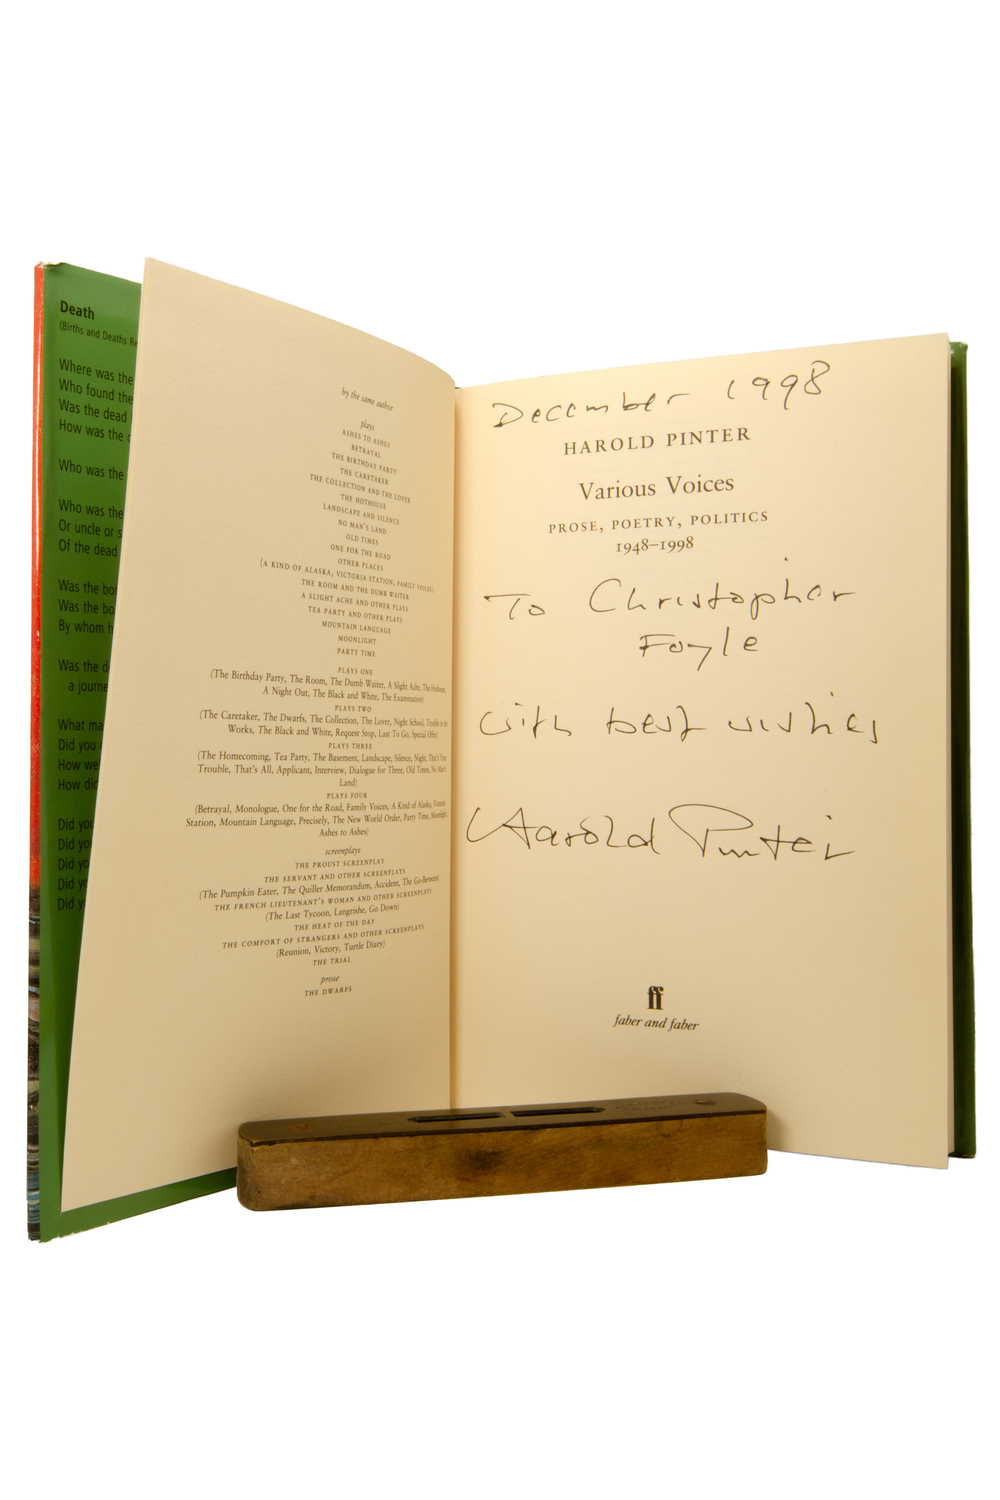 Death
(Births and Deaths
Where was the
Who found the
Was the dead
How was the
Who was the
Who was the
Or uncle or
Of the dead
Was the
Was the
By whom
Was the
a journe
What ma
Did you
How we
How did
Did you
Did you
Did you
Did you
Did you
by the same author
plays
ASHES TO ASHES
BETRAYAL
THE BIRTHDAY PARTY
THE CARETAKER
THE COLLECTION AND THE LOVER
THE HOTHOUSE
LANDSCAPE AND SILENCE
NO MAN'S LAND
OLD TIMES
ONE FOR THE ROAD
OTHER PLACES
(A KIND OF ALASKA, VICTORIA STATION, FAMILY VOICES)
THE ROOM AND THE DUMB WAITER
A SLIGHT ACHE AND OTHER PLAYS
TEA PARTY AND OTHER PLAYS
MOUNTAIN LANGUAGE
MOONLIGHT
PARTY TIME
PLAYS ONE
(The Birthday Party, The Room, The Dumb Waiter, A Slight Ache, The Hothouse,
A Night Out, The Black and White, The Examination)
PLAYS TWO
(The Caretaker, The Dwarfs, The Collection, The Lover, Night School, Trouble in the
Works, The Black and White, Request Stop, Last To Go, Special Offer)
PLAYS THREE
(The Homecoming, Tea Party, The Basement, Landscape, Silence, Night, That's Your
Trouble, That's All, Applicant, Interview, Dialogue for Three, Old Times, No Man's
Land)
PLAYS FOUR
(Betrayal, Monologue, One for the Road, Family Voices, A Kind of Alaska, Victoria
Station, Mountain Language, Precisely, The New World Order, Party Time, Moonlight,
Ashes to Ashes)
screenplays
THE PROUST SCREENPLAY
THE SERVANT AND OTHER SCREENPLAYS
(The Pumpkin Eater, The Quiller Memorandum, Accident, The Go-Between)
THE FRENCH LIEUTENANT'S WOMAN AND OTHER SCREENPLAYS
(The Last Tycoon, Langrishe, Go Down)
THE HEAT OF THE DAY
THE COMFORT OF STRANGERS AND OTHER SCREENPLAYS
(Reunion, Victory, Turtle Diary)
THE TRIAL
prose
THE DWARFS
December 1998
HAROLD PINTER
Various Voices
PROSE, POETRY, POLITICS
1948–1998
To Christopher
Foyle
with best wishes
Harold Pinter
ff
faber and faber